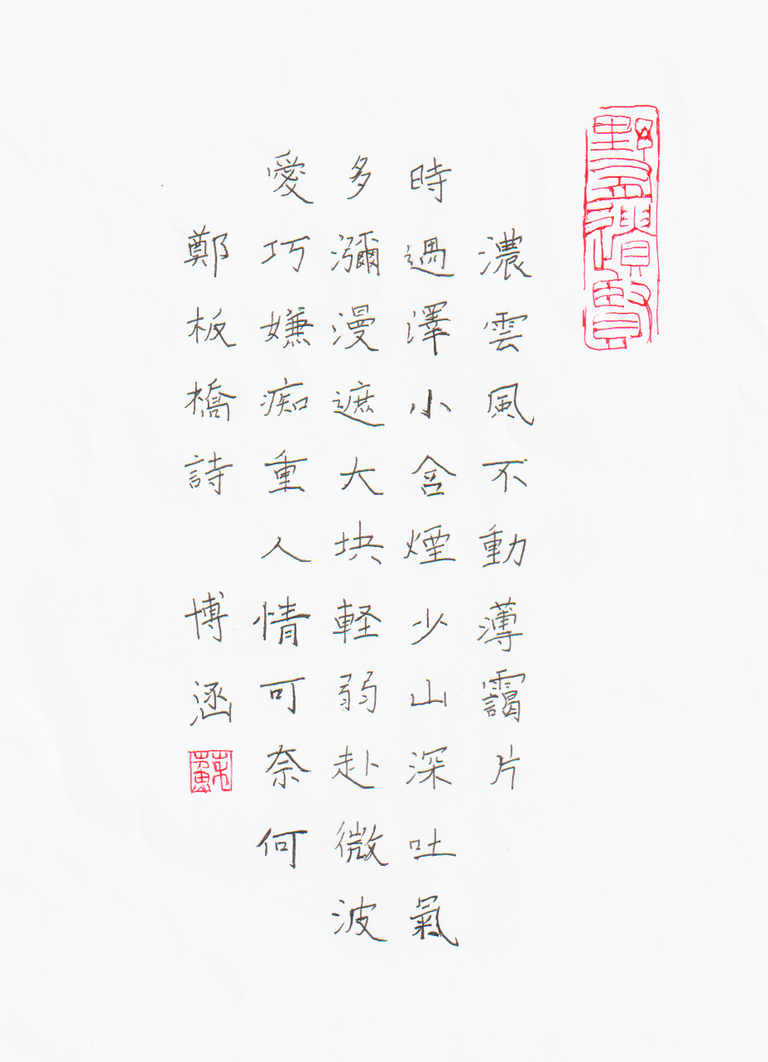 濃雲風不動薄靄片
時過澤小含煙少山深吐氣
多瀰漫遮大块軽弱赴微波
愛巧嫌痴重人情可奈何
鄭板橋詩 博涵
蘇